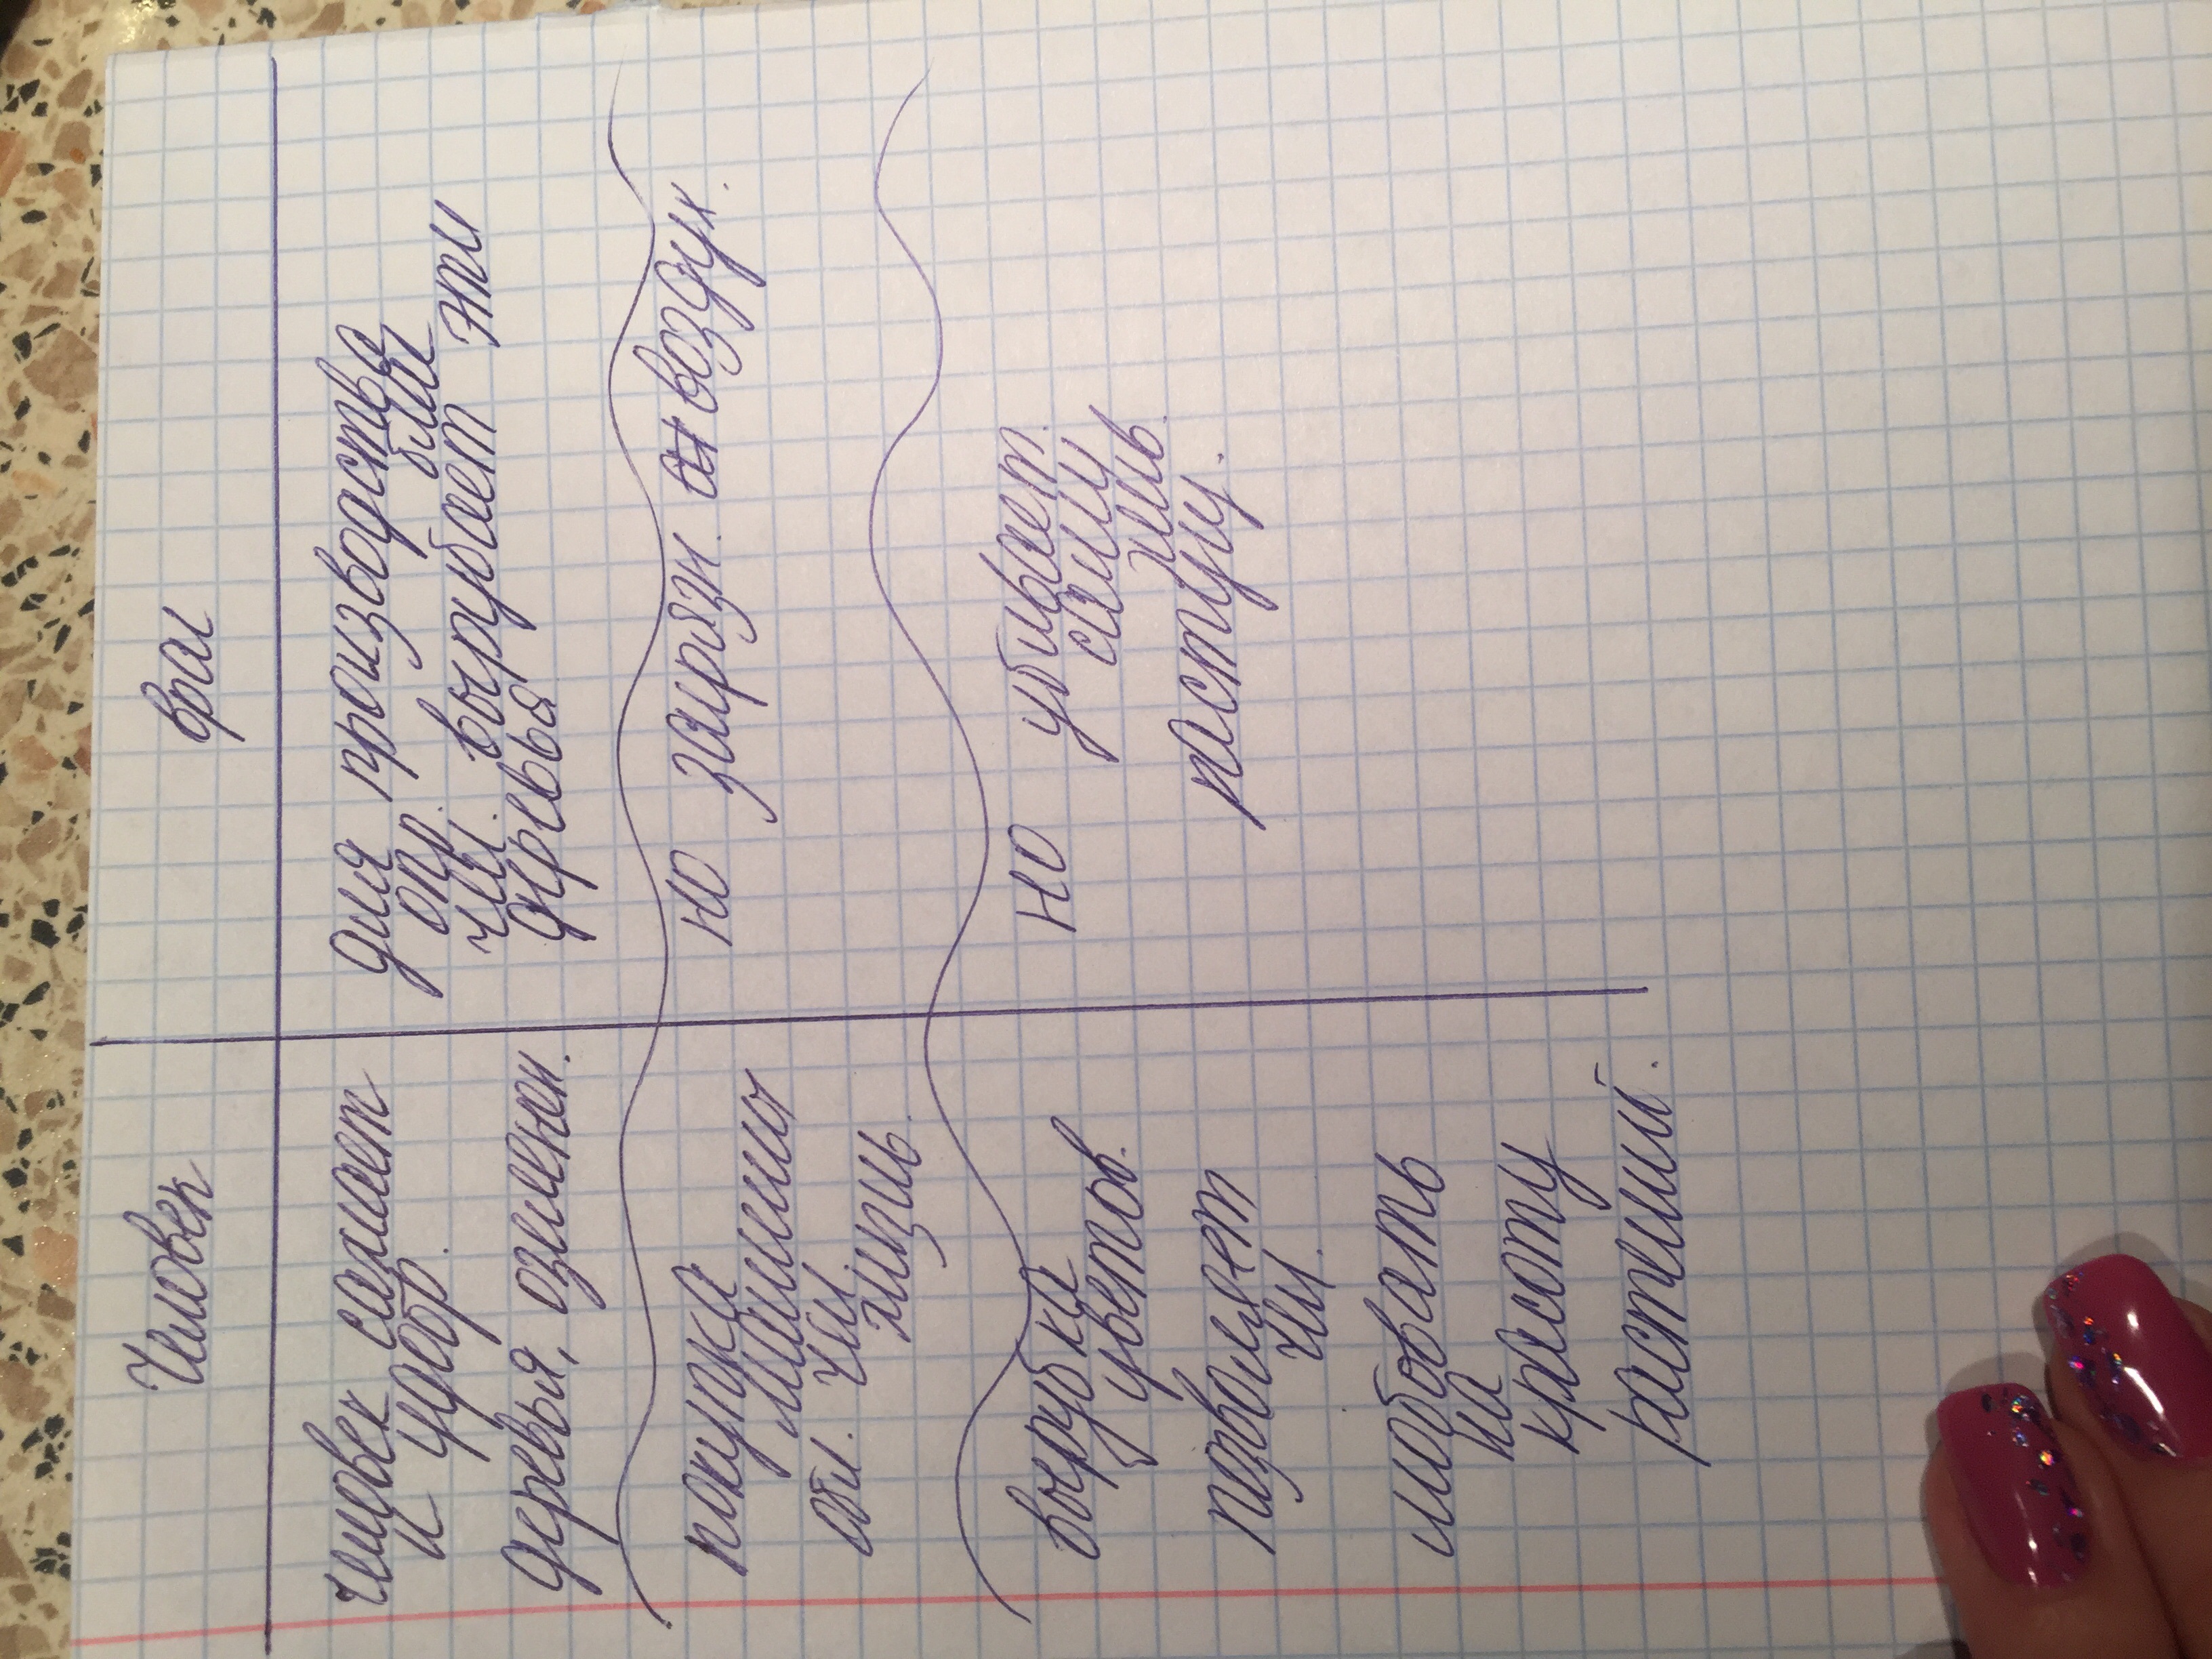 Человек враг
человек сажает
и удобр.
деревья, озеленен.
для производства
опр. благ
чел. вырубает эти
деревья
покупка
машины
обл. чел.
жизнь.
но загрязн. воздух.
вырубка
цветов.
позволяет
чел.
любовать
на
красоту
растений.
но убивает
саму
жизнь
растиц.